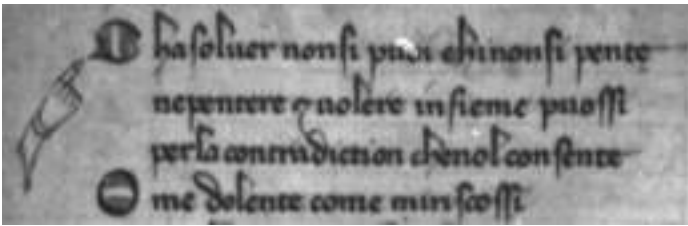 C ha soluer non si puo chi non si pente
ne pentere ⁊ uolere insieme puossi
per la contradiction che nol consente
O me dolente come mi riscossi